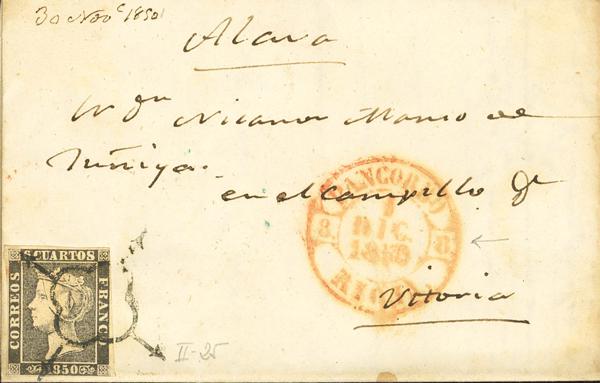 30 Nov.e 1850
Alava
Nicanor Manso de
Zuñiga.
en el campillo de
Vitoria
PANCORBO
1
DIC.
1850
8 8
6 CUARTOS
CORREOS
FRANCO
1850
II-25